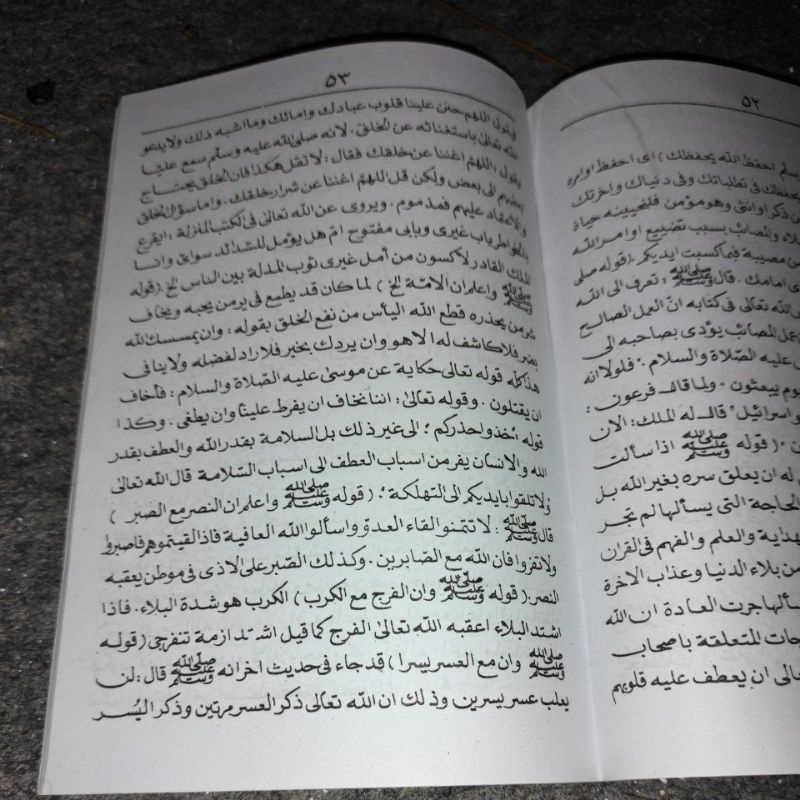 ٥٢
سلم احفظ الله يحفظك ) اى احفظ اوامره
يحفظك فى تطلباتك وفى دنياك واخرتك
من ذكر او انثى وهو مؤمن فلنحيينه حياة
والمصائب بسبب تضييع اوامر الله
من مصيبة فبما كسبت ايديكم . ( قوله صلى
امامك . قال ﷺ : تعرف الى الله
الله تعالى فى كتابه انّ العمل الصالح
المصائب يؤدى بصاحبه الى
عليه الصّلاة والسلام . فلولا انه
يوم يبعثون . ولما قال فرعون :
اسرائيل قال له الملك : الآن
( قوله ﷺ اذا سألت
له ان يعلق سره بغير الله بل
الحاجة التى يسألها لم تجر
الهداية والعلم والفهم فى القرآن
من بلاء الدنيا وعذاب الاخرة
جرت العادة ان الله
المتعلقة باصحاب
تعالى ان يعطف عليه قلوبهم
٥٣
ويقول اللهم حنن علينا قلوب عبادك وامائك وما اشبه ذلك ولا يدعو
الله تعالى باستغنائه عن الخلق . لانه صلى الله عليه وسلم سمع عليا
يقول : اللهم اغننا عن خلقك فقال : لا تقل هكذا فان الخلق يحتاج
بعضهم الى بعض ولكن قل اللهمّ اغننا عن شرار خلقك . واما سؤال الخلق
والاعتماد عليهم فمذموم . ويروى عن الله تعالى فى الكتب المنزلة : ايقرع
بالخواطر باب غيرى وبابى مفتوح ام هل يؤمل للشدائد سواى وانا
الملك القادر لأكسون من أمل غيرى ثوب المذلة بين الناس الخ . ( قوله
ﷺ واعلم ان الامّة الخ ) لما كان قد يطمع فى بر من يحبه ويخاف
شر من يحذره قطع الله اليأس من نفع الخلق بقوله : وان يمسسك الله
بضر فلا كاشف له الا هو وان يردك بخير فلا راد لفضله ولا ينافى
هذا كله قوله تعالى حكاية عن موسى عليه الصّلاة والسلام : فأخاف
ان يقتلون . وقوله تعالى : اننا نخاف ان يفرط علينا وان يطغى . وكذا
قوله : خذوا حذركم ؛ الى غير ذلك بل السلامة بقدر الله والعطف بقدر
الله والانسان يفر من اسباب العطف الى اسباب السّلامة قال الله تعالى
ولا تلقوا بايديكم الى التهلكة . ( قوله ﷺ واعلم ان النصر مع الصبر )
قال ﷺ : لا تتمنوا لقاء العدوّ واسألوا الله العافية فاذا لقيتموهم فاصبروا
ولا تفزوا فان الله مع الصّابرين . وكذلك الصّبر على الاذى فى موطن يعقبه
النصر . ( قوله ﷺ وان الفرج مع الكرب ) الكرب هو شدة البلاء . فاذا
اشتد البلاء اعقبه الله تعالى الفرج كما قيل اشتد ازمة تنفرجى ( قوله
ﷺ وان مع العسر يسرا ) قد جاء فى حديث اخر انه ﷺ قال : لن
يغلب عسر يسرين وذلك ان الله تعالى ذكر العسر مرتين وذكر اليُسر